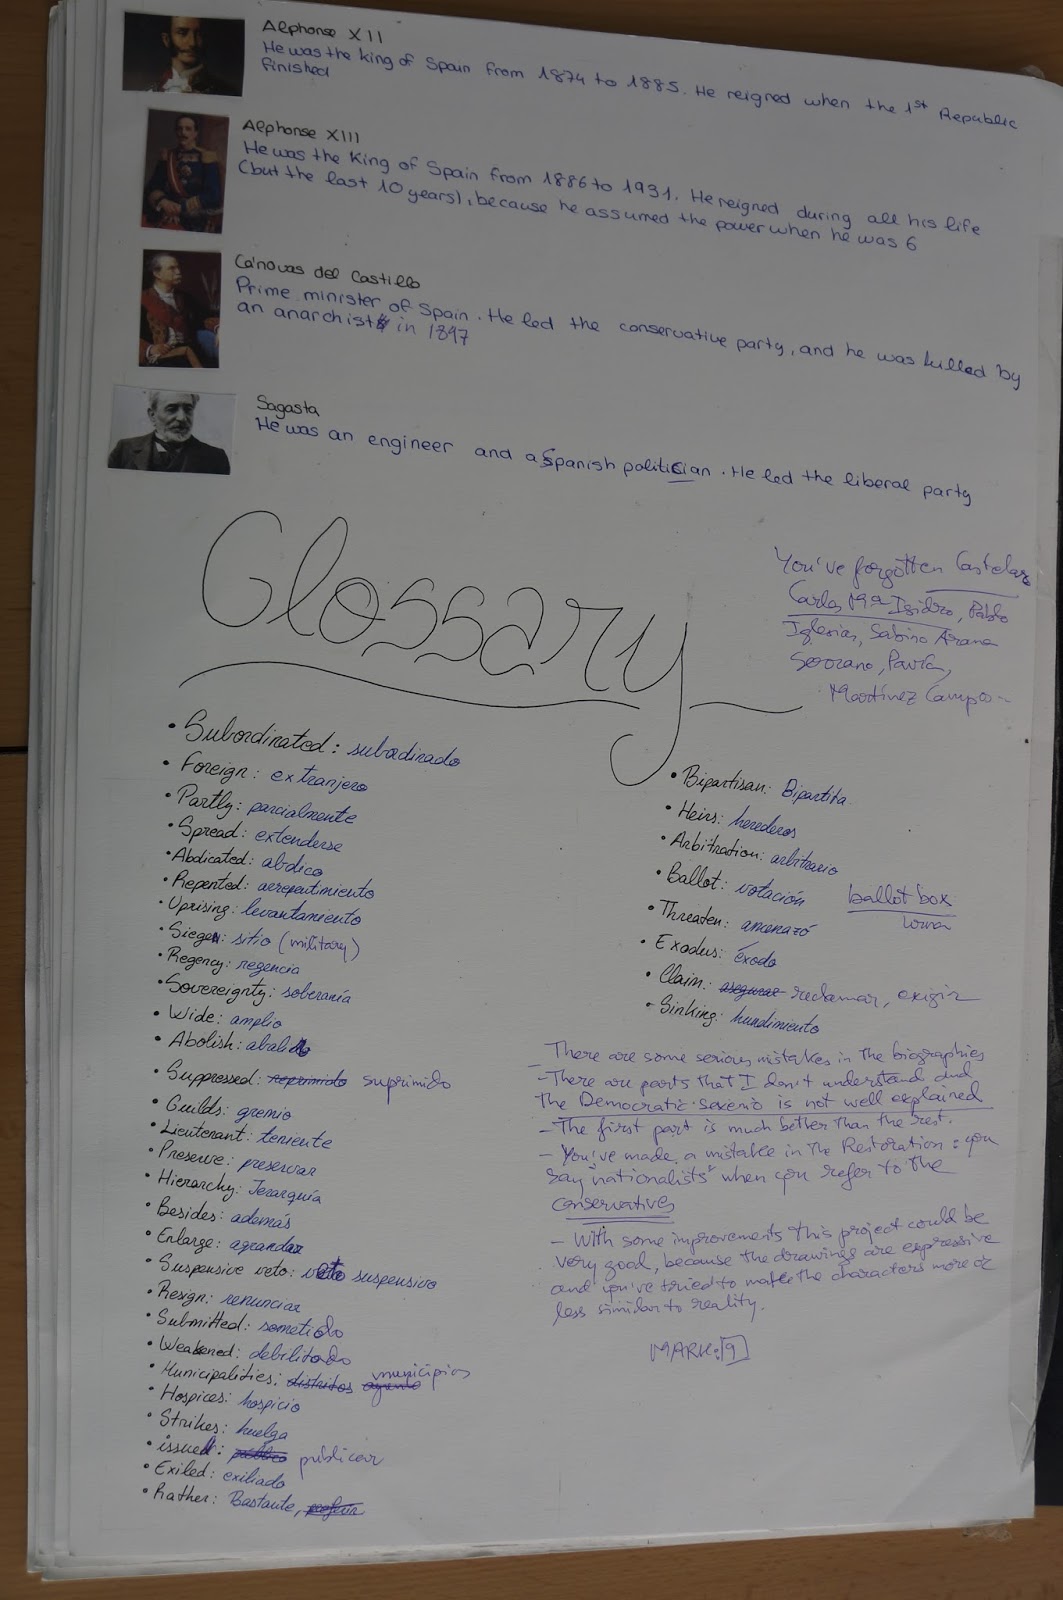 Alphonse XII
He was the king of Spain from 1874 to 1885. He reigned when the 1st Republic
finished
Alphonse XIII
He was the King of Spain from 1886 to 1931. He reigned during all his life
(but the last 10 years), because he assumed the power when he was 6
Cánovas del Castillo
Prime minister of Spain. He led the conservative party, and he was killed by
an anarchist in 1897
Sagasta
He was an engineer and a Spanish politician. He led the liberal party
Glossary
You've forgotten Castelar
Carlos Mª Isidro, Pablo
Iglesias, Sabino Arana
Serrano, Pavía,
Martínez Campos
• Subordinated: subordinado
• Foreign: extranjero
• Partly: parcialmente
• Spread: extenderse
• Abdicated: abdico
• Repented: arrepentimiento
• Uprising: levantamiento
• Siege: sitio (military)
• Regency: regencia
• Sovereignty: soberanía
• Wide: amplio
• Abolish: abolir
• Suppressed: reprimido suprimido
• Guilds: gremio
• Lieutenant: teniente
• Preserve: preservar
• Hierarchy: Jerarquía
• Besides: además
• Enlarge: agrandar
• Suspensive veto: veto suspensivo
• Resign: renunciar
• Submitted: sometido
• Weakened: debilitado
• Municipalities: distritos municipios
• Hospices: hospicio
• Strikes: huelga
• issue: publicar
• Exiled: exiliado
• Rather: Bastante,
• Bipartisan: Bipartita
• Heirs: herederos
• Arbitration: arbitrario
• Ballot: votación ballot box
urna
• Threaten: amenazó
• Exodus: éxodo
• Claim: asegurar reclamar, exigir
• Sinking: hundimiento
There are some serious mistakes in the biographies
- There are parts that I don't understand and
the Democratic Sexenio is not well explained
- The first part is much better than the rest.
- You've made a mistake in the Restoration: you
say "nationalists" when you refer to the
conservatives
- With some improvements this project could be
very good, because the drawings are expressive
and you've tried to make the characters more or
less similar to reality.
MARK: 9